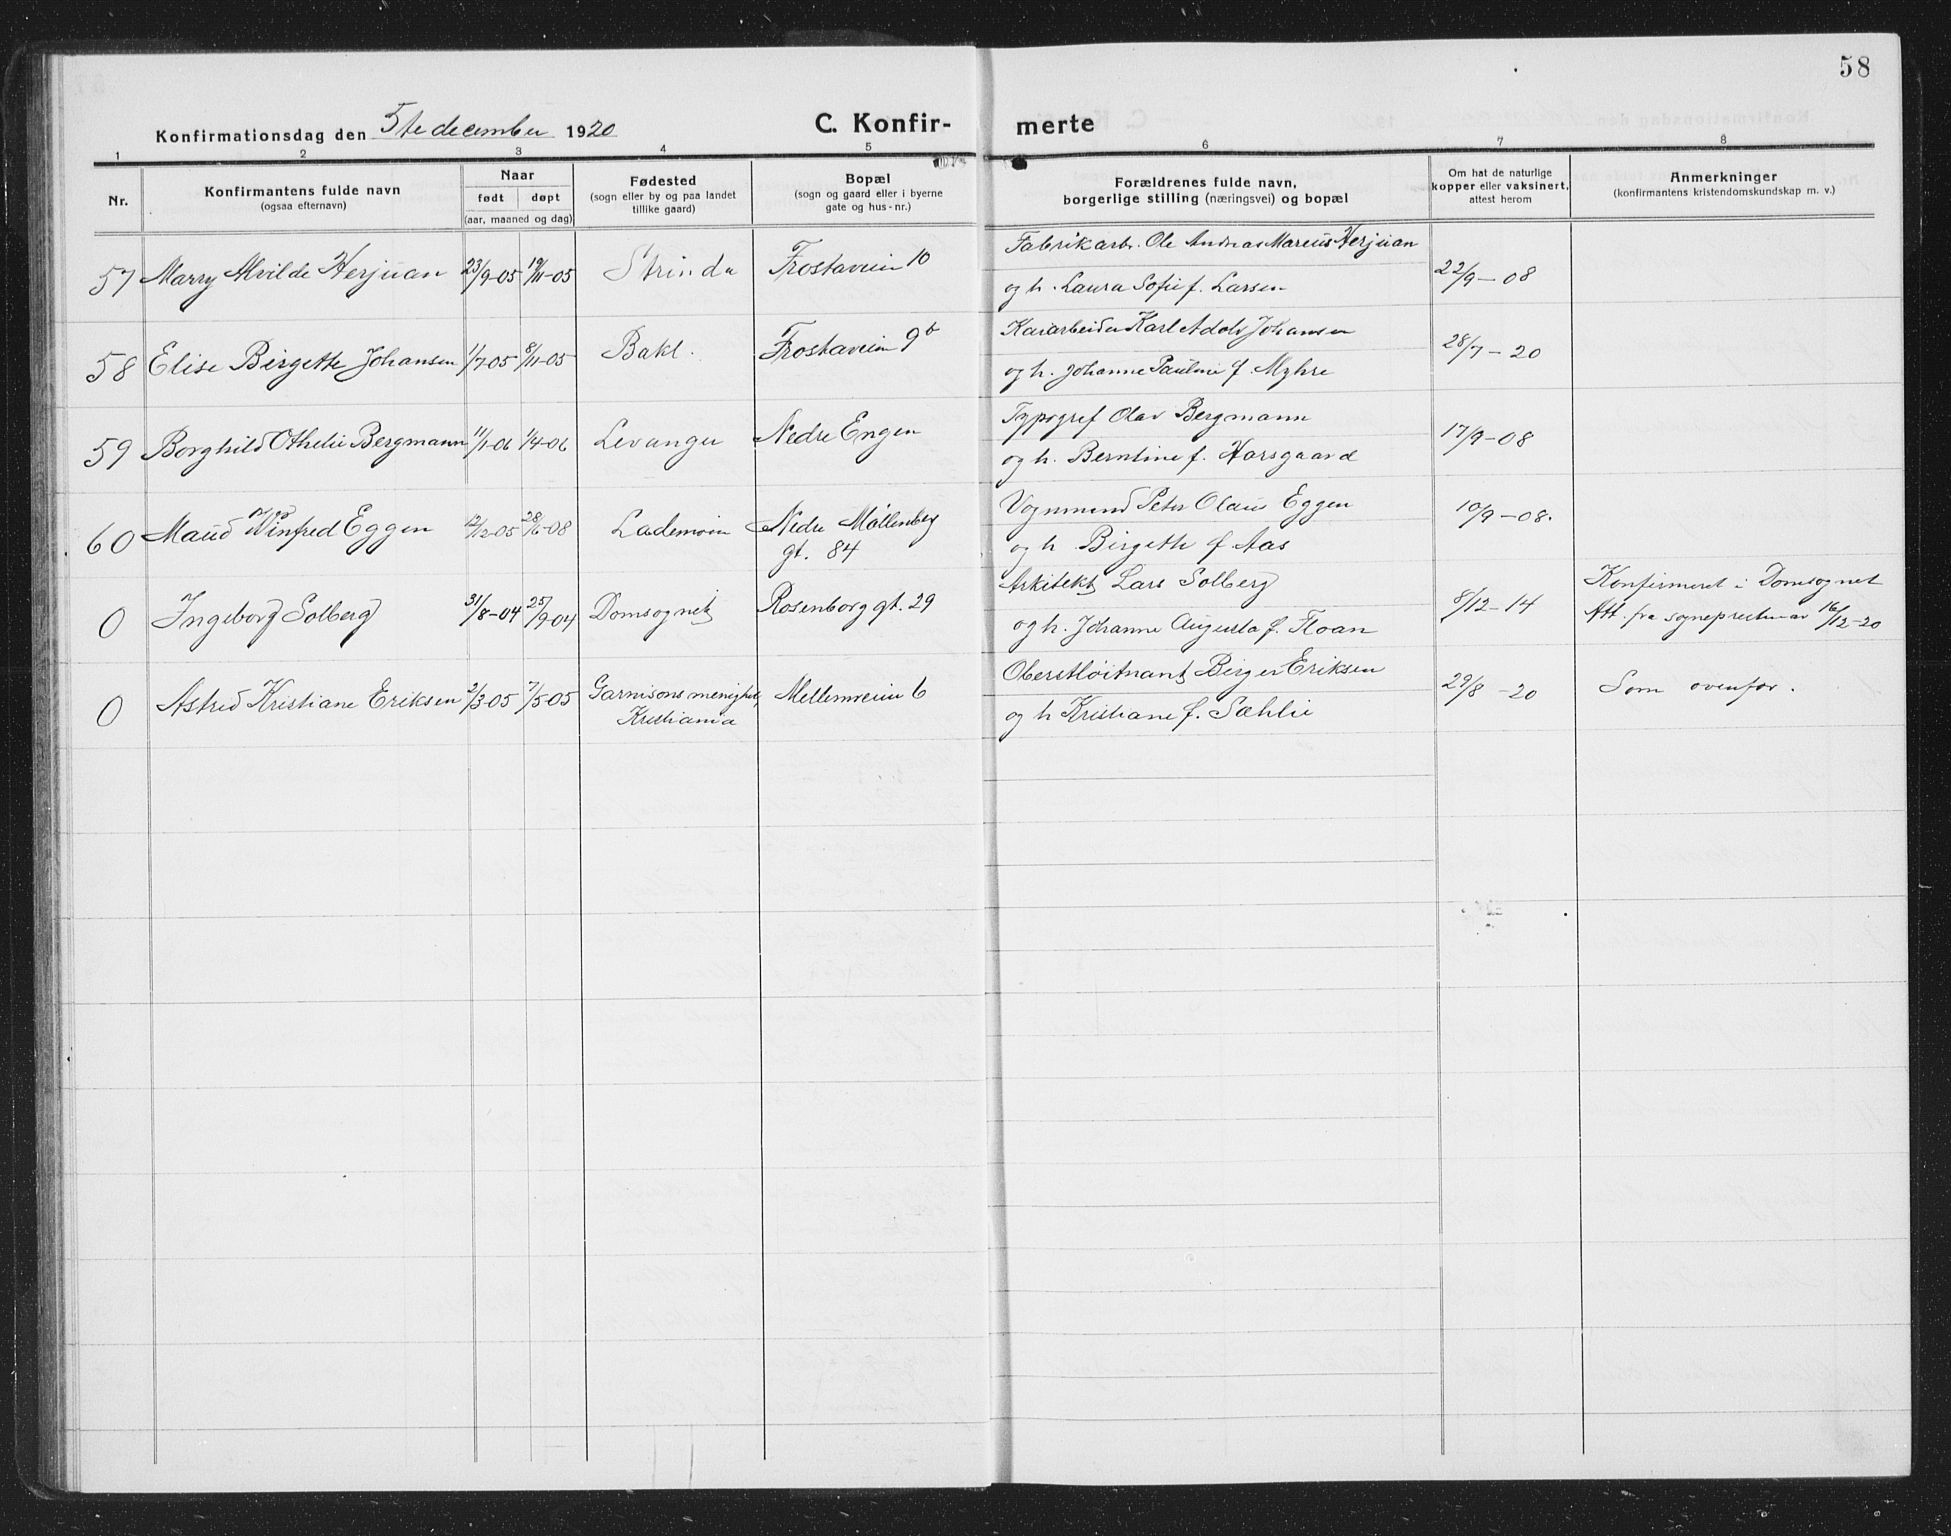 58
Konfirmationsdag den 5te december 1920 C. Konfir- merte
1 2 3 4 5 6 7 8
Nr.
Konfirmantens fulde navn
(ogsaa efternavn)
Naar
født døpt
(aar, maaned og dag)
Fødested
(sogn eller by og paa landet
tillike gaard)
Bopæl
(sogn og gaard eller i byerne
gate og hus-nr.)
Forældrenes fulde navn,
borgerlige stilling (næringsvei) og bopæl
Om hat de naturlige
kopper eller vaksinert,
attest herom
Anmerkninger
(konfirmantens kristendomskundskap m. v.)
57 Marry Alvilde Herjuan 23/9-05 19/11-05 Strinda Frostaveien 10 Fabrikarb. Ole Andreas Mareus Herjuan 22/9-08
og h. Laura Sofie f. Larsen
58 Elise Birgette Johansen 1/7-05 8/11-05 Bakl. Frostaveien 9b Kaiarbeider Karl Adolv Johansen 28/7-20
og h. Johanne Pauline f. Myhre
59 Borghild Othelie Bergmann 11/1-06 1/4-06 Levanger Nedre Engen Typogref Olav Bergmann 17/9-08
og h. Berntine f. Horsgaard
60 Maud Winfred Eggen 12/2-05 28/6-08 Lademoen Nedre Møllenberg Vognmend Peter Olaus Eggen 10/9-08.
gt. 84 og h Birgeth f Aas
0 Ingeborg Solberg 31/8-04 25/9-04 Domsognet Rosenborg gt. 29 Arkitekt Lars Solberg 8/12-14 Konfirmeret i Domsognet
og h. Johanne Augusta f. Floan Att. fra sognepresten av 16/12-20
0 Astrid Kristiane Eriksen 2/3-05 7/5-05 Garnisons menighet, Mellemveien 6 Oberstløitnant Birger Eriksen 29/8-20 Som ovenfor.
Kristiania og h Kristiane f. Sæhlie